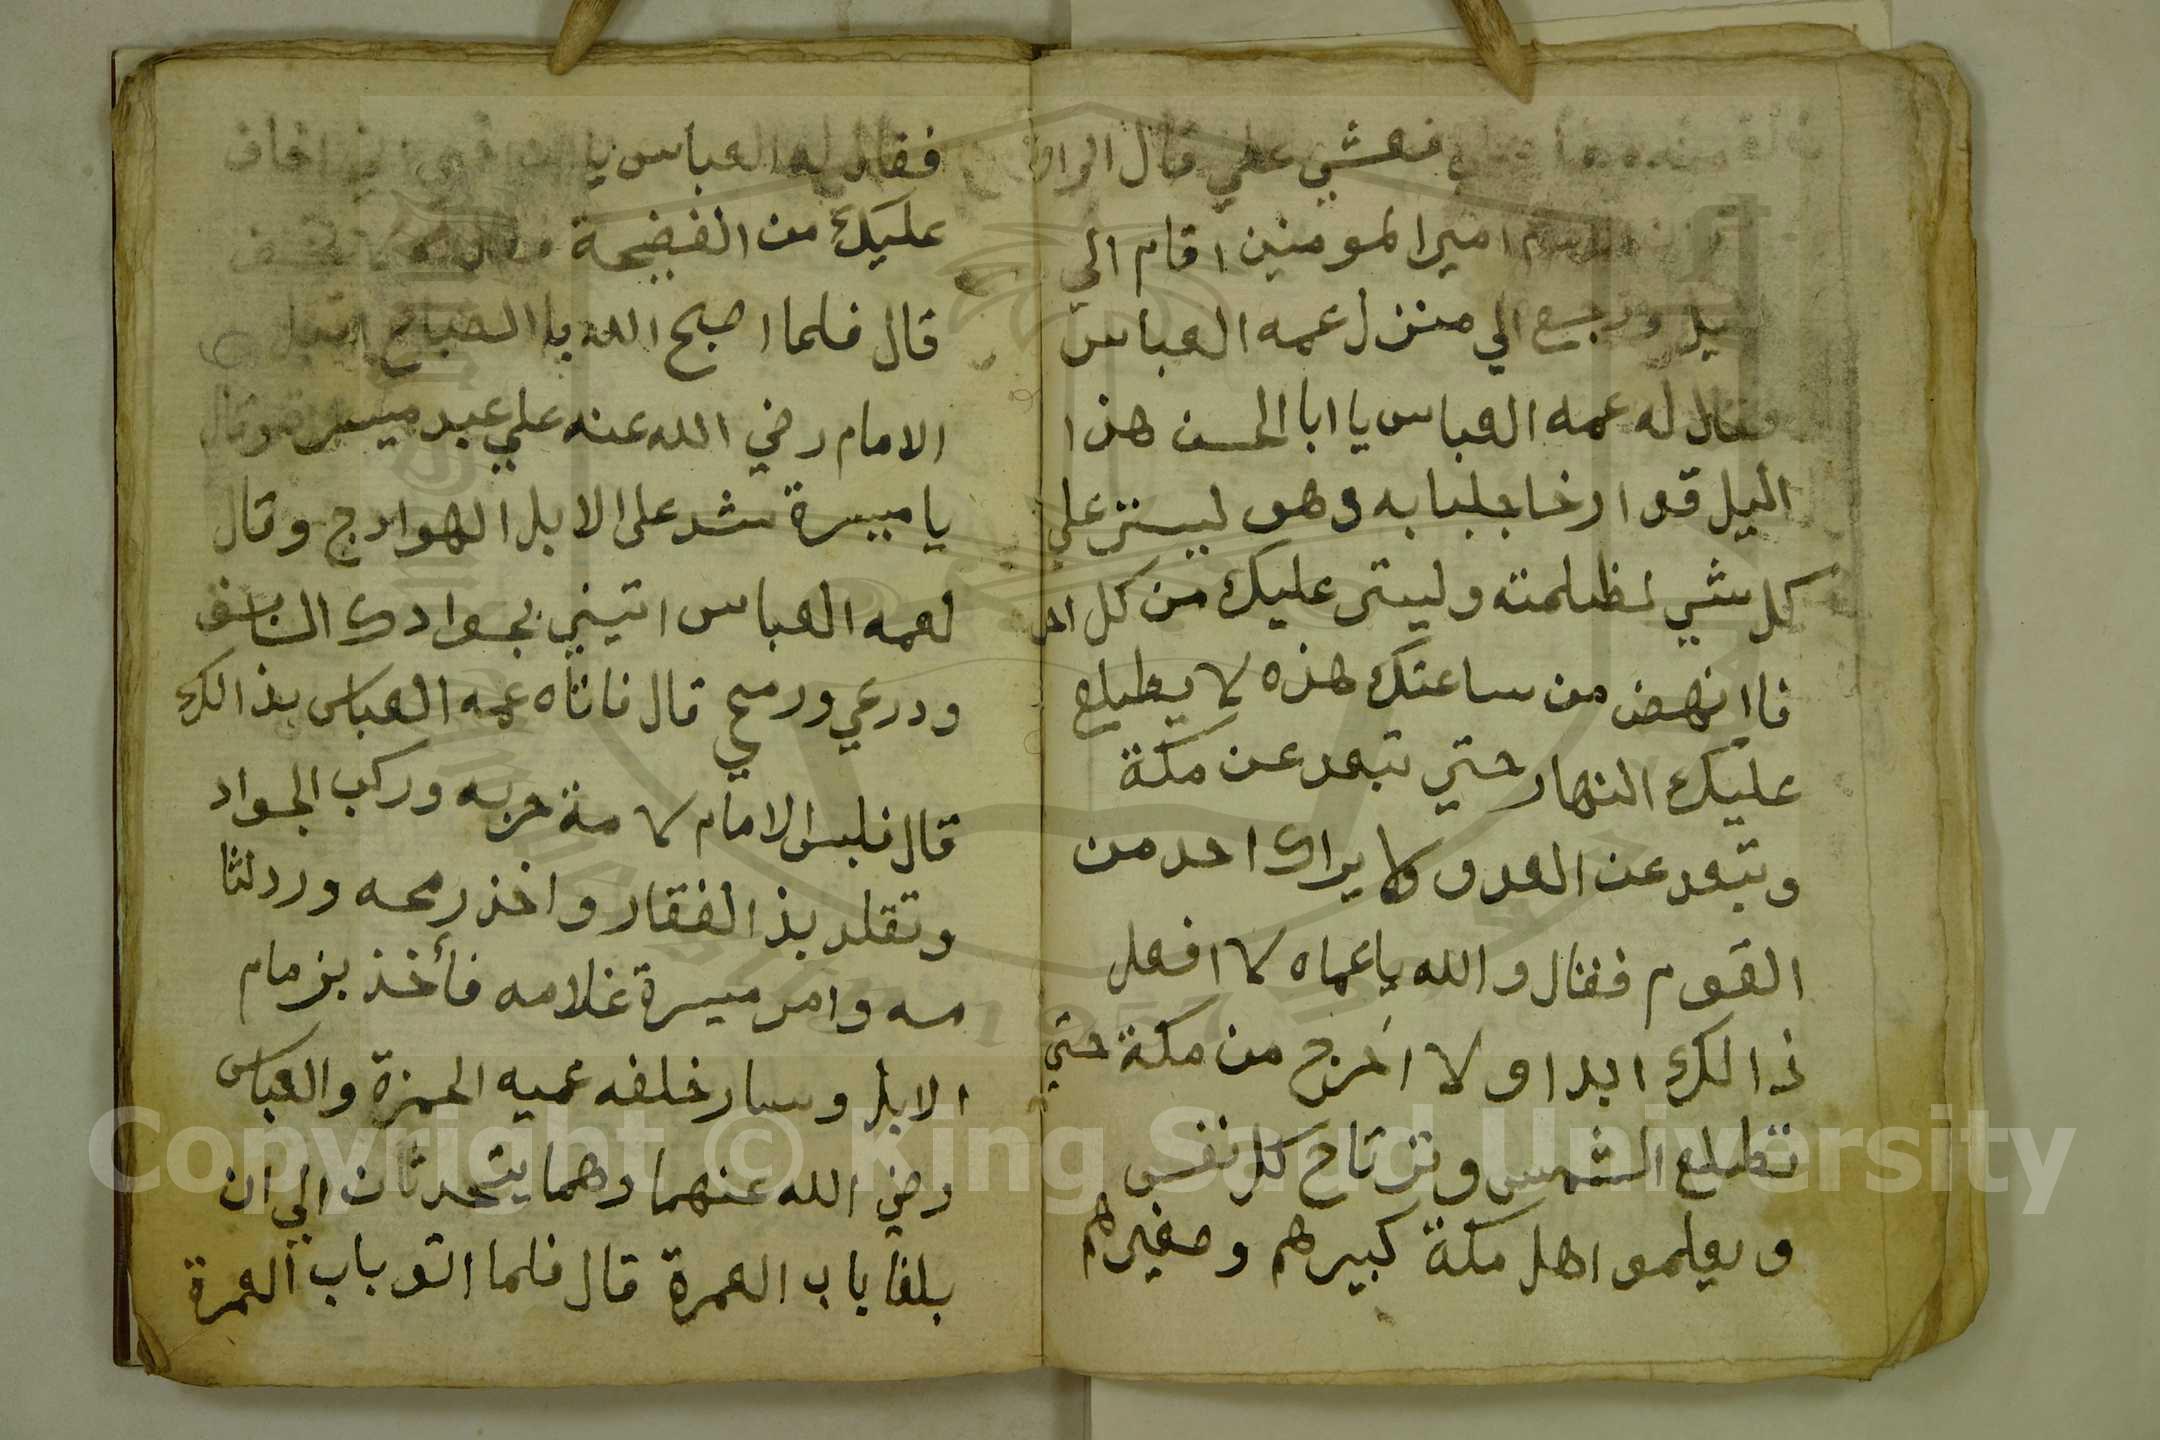 فمشي علي قال الرا
امير المومنين اقام الي
ورجع الي منزل عمه العباس
فقال له عمه العباس يا ابا الحسن هذا
اليل قد ارخا جلبابه وهو ليستر علي
كل شي بظلمته وليستر عليك من كل احد
فاانهض من ساعتك هذه لا يطلع
عليك النهار حتي تبعد عن مكة
وتبعد عن العدو ولا يراك احد من
القوم فقال والله ياعماه لا افعل
ذالك ابدا ولا اخرج من مكة حتي
تطلع الشمس وترتاح كل نفس
ويعلمو اهل مكة كبيرهم وصغيرهم
فقال له العباس يا اخاف
عليك من الفضيحة
قال فلما اصبح الله باالصباح اقبل
الامام رضي الله عنه علي عبد ميسرة وقال
يا ميسرة شد على الابل الهوادج وقال
لعمه العباس اتيني بجوادي السابق
ودرعي ورمحي قال فاتاه عمه العباس بذالك
قال فلبس الامام لامة حربه وركب الجواد
وتقلد بذ الفقار واخذ رمحه ورد لثا
مه وامر ميسرة غلامه فأخذ بزمام
الابل وسار خلفه عميه الحمزة والعباس
رضي الله عنهما وهما يتحدثان الي ان
بلغا باب العمرة قال فلما اتو باب العمرة
Copyright © King Saud University